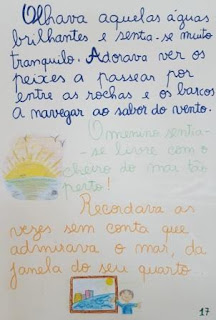 Olhava aquelas águas
brilhantes e sentia-se muito
tranquilo. Adorava ver os
peixes a passear por
entre as rochas e os barcos
a navegar ao sabor do vento.
O menino sentia-
-se livre com o
cheiro do mar tão
perto!
Recordava as
vezes sem conta que
admirava o mar, da
janela do seu quarto...
17